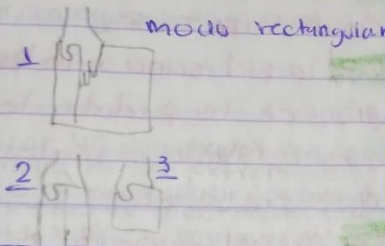 modo rectangular
1
2
3